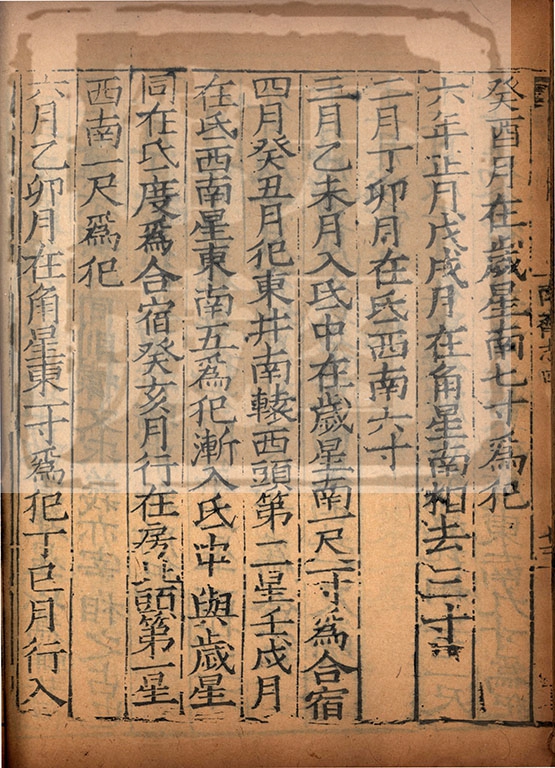 癸酉月在歲星南七寸爲犯
六年正月戊戌月在角星南相去三寸
二月丁卯月在氐西南六寸
三月乙未月入氐中在歲星南一尺一寸爲合宿
四月癸丑月犯東井南轅西頭第二星壬戌月
在氐西南星東南五爲犯漸入氐中與歲星
同在氐度爲合宿癸亥月行在房北頭第一星
西南一尺爲犯
六月乙卯月在角星東一寸爲犯丁巳月行入